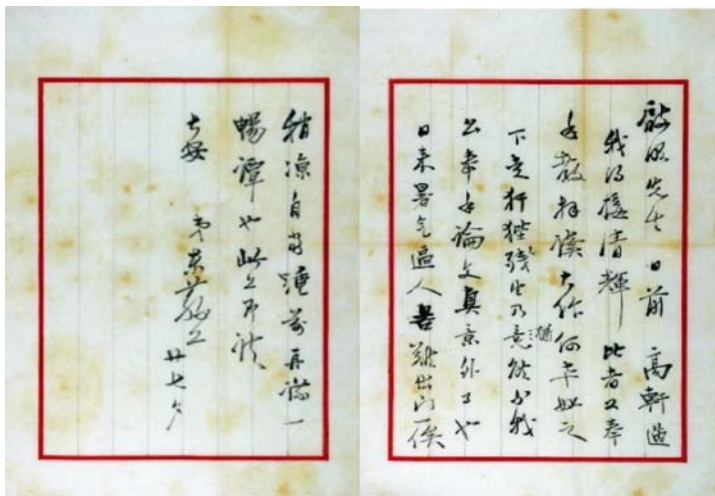 先生 日前 高軒過
我得接清輝 比者又奉
手教拜讀大作何幸如之
下走犴狴殘生乃竟猶能与我
公奉手論文真意外事也
日來暑氣逼人苦難出門一俟
稍涼自當踵前再一
暢譚也此上即頌
大安 弟東蓀上
廿七夕